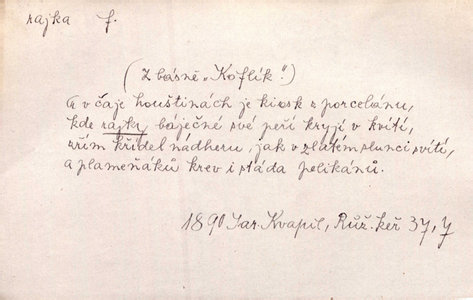 rajka f.
(Z básně „Koflík“.)
A v čaje houštinách je kiosk z porcelánu,
kde rajky báječné své peří kryjí v kvítí,
zřím křídel nádheru, jak v zlatém slunci svítí,
a plameňáků krev i stáda pelikánů.
1890 Jar. Kvapil, Růž. keř 37, 7